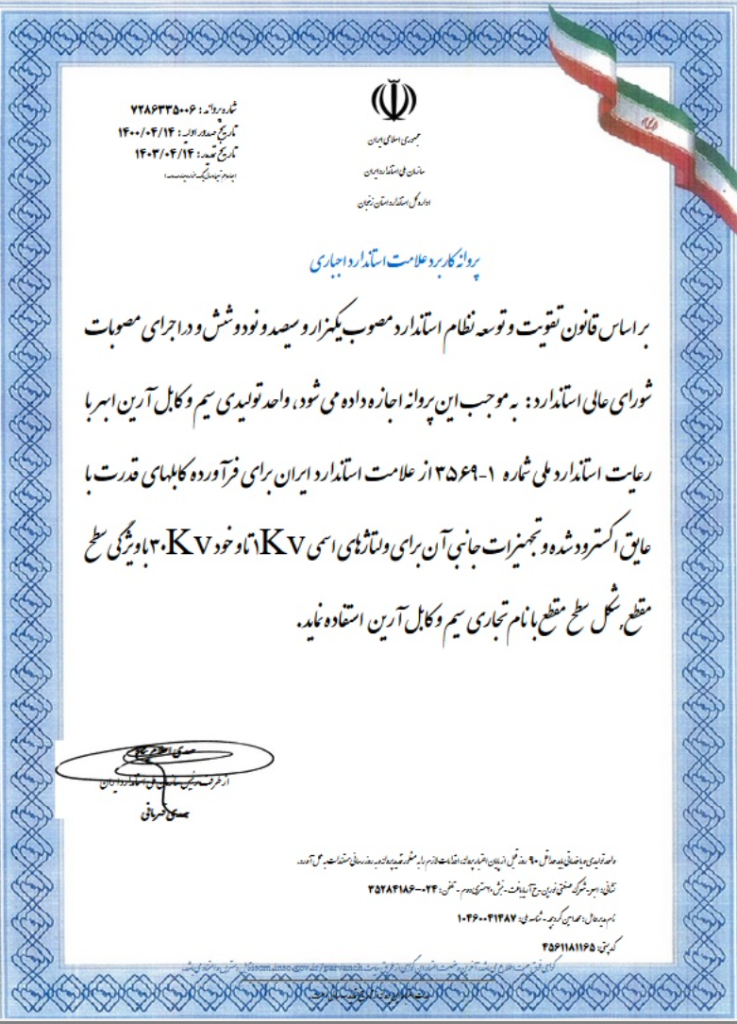 جمهوری اسلامی ایران
سازمان ملی استاندارد ایران
اداره کل استاندارد استان زنجان
شماره پروانه: ۷۲۸۶۳۳۵۰۰۶
تاریخ صدور اولیه: ۱۴۰۰/۰۴/۱۴
تاریخ تمدید: ۱۴۰۳/۰۴/۱۴
پروانه کاربرد علامت استاندارد اجباری
بر اساس قانون تقویت و توسعه نظام استاندارد مصوب یکهزار و سیصد و نود و شش و در اجرای مصوبات
شورای عالی استاندارد: به موجب این پروانه اجازه داده می شود، واحد تولیدی سیم و کابل آرین ابهر با
رعایت استاندارد ملی شماره ۱-۳۵۶۹ از علامت استاندارد ایران برای فرآورده کابلهای قدرت با
عایق اکسترود شده و تجهیزات جانبی آن برای ولتاژهای اسمی ۱Kv تا و خود ۳۰Kv با ویژگی سطح
مقطع, شکل سطح مقطع با نام تجاری سیم و کابل آرین استفاده نماید.
از طرف رئیس سازمان ملی استاندارد ایران
مهدی قربانی
واحد تولیدی و یا خدماتی باید حداقل ۹۰ روز قبل از پایان اعتبار پروانه، اقدامات لازم را به منظور تمدید پروانه و به روز رسانی مستندات به عمل آورد.
نشانی: ابهر - شهرک صنعتی نورین - خ - نبش - دوم - تلفن: ۰۲۴-۳۵۲۸۴۱۸۶
نام مدیرعامل: - شناسه ملی: ۱۰۴۶۰۰۴۱۴۸۷
کد پستی: ۴۵۶۱۱۸۱۱۶۵